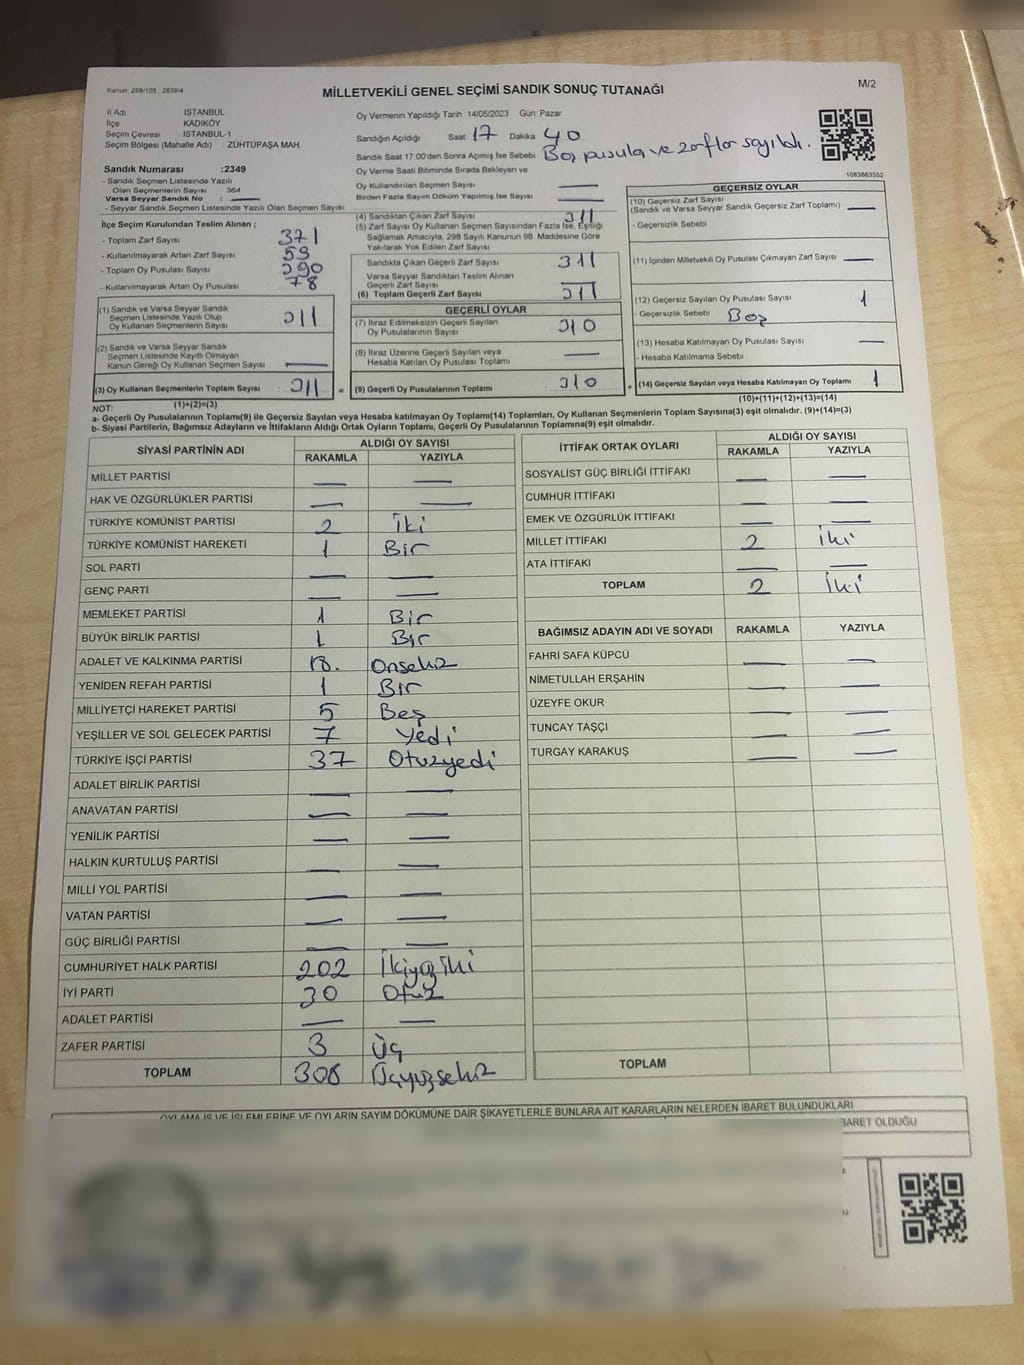 Kanun: 298/105 , 2839/4
MİLLETVEKİLİ GENEL SEÇİMİ SANDIK SONUÇ TUTANAĞI
M/2
İl Adı : İSTANBUL
İlçe : KADIKÖY
Seçim Çevresi : İSTANBUL-1
Seçim Bölgesi (Mahalle Adı) : ZÜHTÜPAŞA MAH
Sandık Numarası :2349
- Sandık Seçmen Listesinde Yazılı
Olan Seçmenlerin Sayısı 364
Varsa Seyyar Sandık No : —
- Seyyar Sandık Seçmen Listesinde Yazılı Olan Seçmen Sayısı
Oy Vermenin Yapıldığı Tarih 14/05/2023 Gün: Pazar
Sandığın Açıldığı Saat 17 Dakika 40
Sandık Saat 17:00'den Sonra Açımış İse Sebebi Boş pusula ve zarflar sayıldı.
Oy Verme Saati Bitiminde Sırada Bekleyen ve
Oy Kullandırılan Seçmen Sayısı —
Birden Fazla Sayım Döküm Yapılmış İse Sayısı —
1083863552
İlçe Seçim Kurulundan Teslim Alınan ;
- Toplam Zarf Sayısı 371
- Kullanılmayarak Artan Zarf Sayısı 59
- Toplam Oy Pusulası Sayısı 390
- Kullanılmayarak Artan Oy Pusulası 78
(1) Sandık ve Varsa Seyyar Sandık
Seçmen Listesinde Yazılı Olup
Oy Kullanan Seçmenlerin Sayısı 311
(2) Sandık ve Varsa Seyyar Sandık
Seçmen Listesinde Kayıtlı Olmayan
Kanun Gereği Oy Kullanan Seçmen Sayısı —
(3) Oy Kullanan Seçmenlerin Toplam Sayısı 311 =
(1)+(2)=(3)
(4) Sandıktan Çıkan Zarf Sayısı 311
(5) Zarf Sayısı Oy Kullanan Seçmen Sayısından Fazla İse, Eşitliği
Sağlamak Amacıyla, 298 Sayılı Kanunun 98. Maddesine Göre
Yakılarak Yok Edilen Zarf Sayısı
Sandıkta Çıkan Geçerli Zarf Sayısı 311
Varsa Seyyar Sandıktan Teslim Alınan
Geçerli Zarf Sayısı —
(6) Toplam Geçerli Zarf Sayısı 311
GEÇERLİ OYLAR
(7) İtiraz Edilmeksizin Geçerli Sayılan
Oy Pusulalarının Sayısı 310
(8) İtiraz Üzerine Geçerli Sayılan veya
Hesaba Katılan Oy Pusulası Toplamı —
(9) Geçerli Oy Pusulalarının Toplamı 310 +
GEÇERSİZ OYLAR
(10) Geçersiz Zarf Sayısı
(Sandık ve Varsa Seyyar Sandık Geçersiz Zarf Toplamı) —
- Geçersizlik Sebebi
(11) İçinden Milletvekili Oy Pusulası Çıkmayan Zarf Sayısı —
(12) Geçersiz Sayılan Oy Pusulası Sayısı 1
- Geçersizlik Sebebi Boş
(13) Hesaba Katılmayan Oy Pusulası Sayısı —
- Hesaba Katılmama Sebebi
(14) Geçersiz Sayılan veya Hesaba Katılmayan Oy Toplamı 1
(10)+(11)+(12)+(13)=(14)
NOT:
a- Geçerli Oy Pusulalarının Toplamı(9) ile Geçersiz Sayılan veya Hesaba katılmayan Oy Toplamı(14) Toplamları, Oy Kullanan Seçmenlerin Toplam Sayısına(3) eşit olmalıdır. (9)+(14)=(3)
b- Siyasi Partilerin, Bağımsız Adayların ve İttifakların Aldığı Ortak Oyların Toplamı, Geçerli Oy Pusulalarının Toplamına(9) eşit olmalıdır.
SİYASİ PARTİNİN ADI ALDIĞI OY SAYISI
RAKAMLA YAZIYLA
MİLLET PARTİSİ — —
HAK VE ÖZGÜRLÜKLER PARTİSİ — —
TÜRKİYE KOMÜNİST PARTİSİ 2 İki
TÜRKİYE KOMÜNİST HAREKETİ 1 Bir
SOL PARTİ — —
GENÇ PARTİ — —
MEMLEKET PARTİSİ 1 Bir
BÜYÜK BİRLİK PARTİSİ 1 Bir
ADALET VE KALKINMA PARTİSİ 18. Onsekiz
YENİDEN REFAH PARTİSİ 1 Bir
MİLLİYETÇİ HAREKET PARTİSİ 5 Beş
YEŞİLLER VE SOL GELECEK PARTİSİ 7 Yedi
TÜRKİYE İŞÇİ PARTİSİ 37 Otuzyedi
ADALET BİRLİK PARTİSİ — —
ANAVATAN PARTİSİ — —
YENİLİK PARTİSİ — —
HALKIN KURTULUŞ PARTİSİ — —
MİLLİ YOL PARTİSİ — —
VATAN PARTİSİ — —
GÜÇ BİRLİĞİ PARTİSİ — —
CUMHURİYET HALK PARTİSİ 202 İkiyüziki
İYİ PARTİ 30 Otuz
ADALET PARTİSİ — —
ZAFER PARTİSİ 3 Üç
TOPLAM 308 Üçyüzsekiz
İTTİFAK ORTAK OYLARI ALDIĞI OY SAYISI
RAKAMLA YAZIYLA
SOSYALİST GÜÇ BİRLİĞİ İTTİFAKI — —
CUMHUR İTTİFAKI — —
EMEK VE ÖZGÜRLÜK İTTİFAKI — —
MİLLET İTTİFAKI 2 İki
ATA İTTİFAKI — —
TOPLAM 2 İki
BAĞIMSIZ ADAYIN ADI VE SOYADI RAKAMLA YAZIYLA
FAHRİ SAFA KÜPCÜ — —
NİMETULLAH ERŞAHİN — —
ÜZEYFE OKUR — —
TUNCAY TAŞÇI — —
TURGAY KARAKUŞ — —
TOPLAM
OYLAMA İŞ VE İŞLEMLERİNE VE OYLARIN SAYIM DÖKÜMÜNE DAİR ŞİKAYETLERLE BUNLARA AİT KARARLARIN NELERDEN İBARET BULUNDUKLARI
BARET OLDUĞU